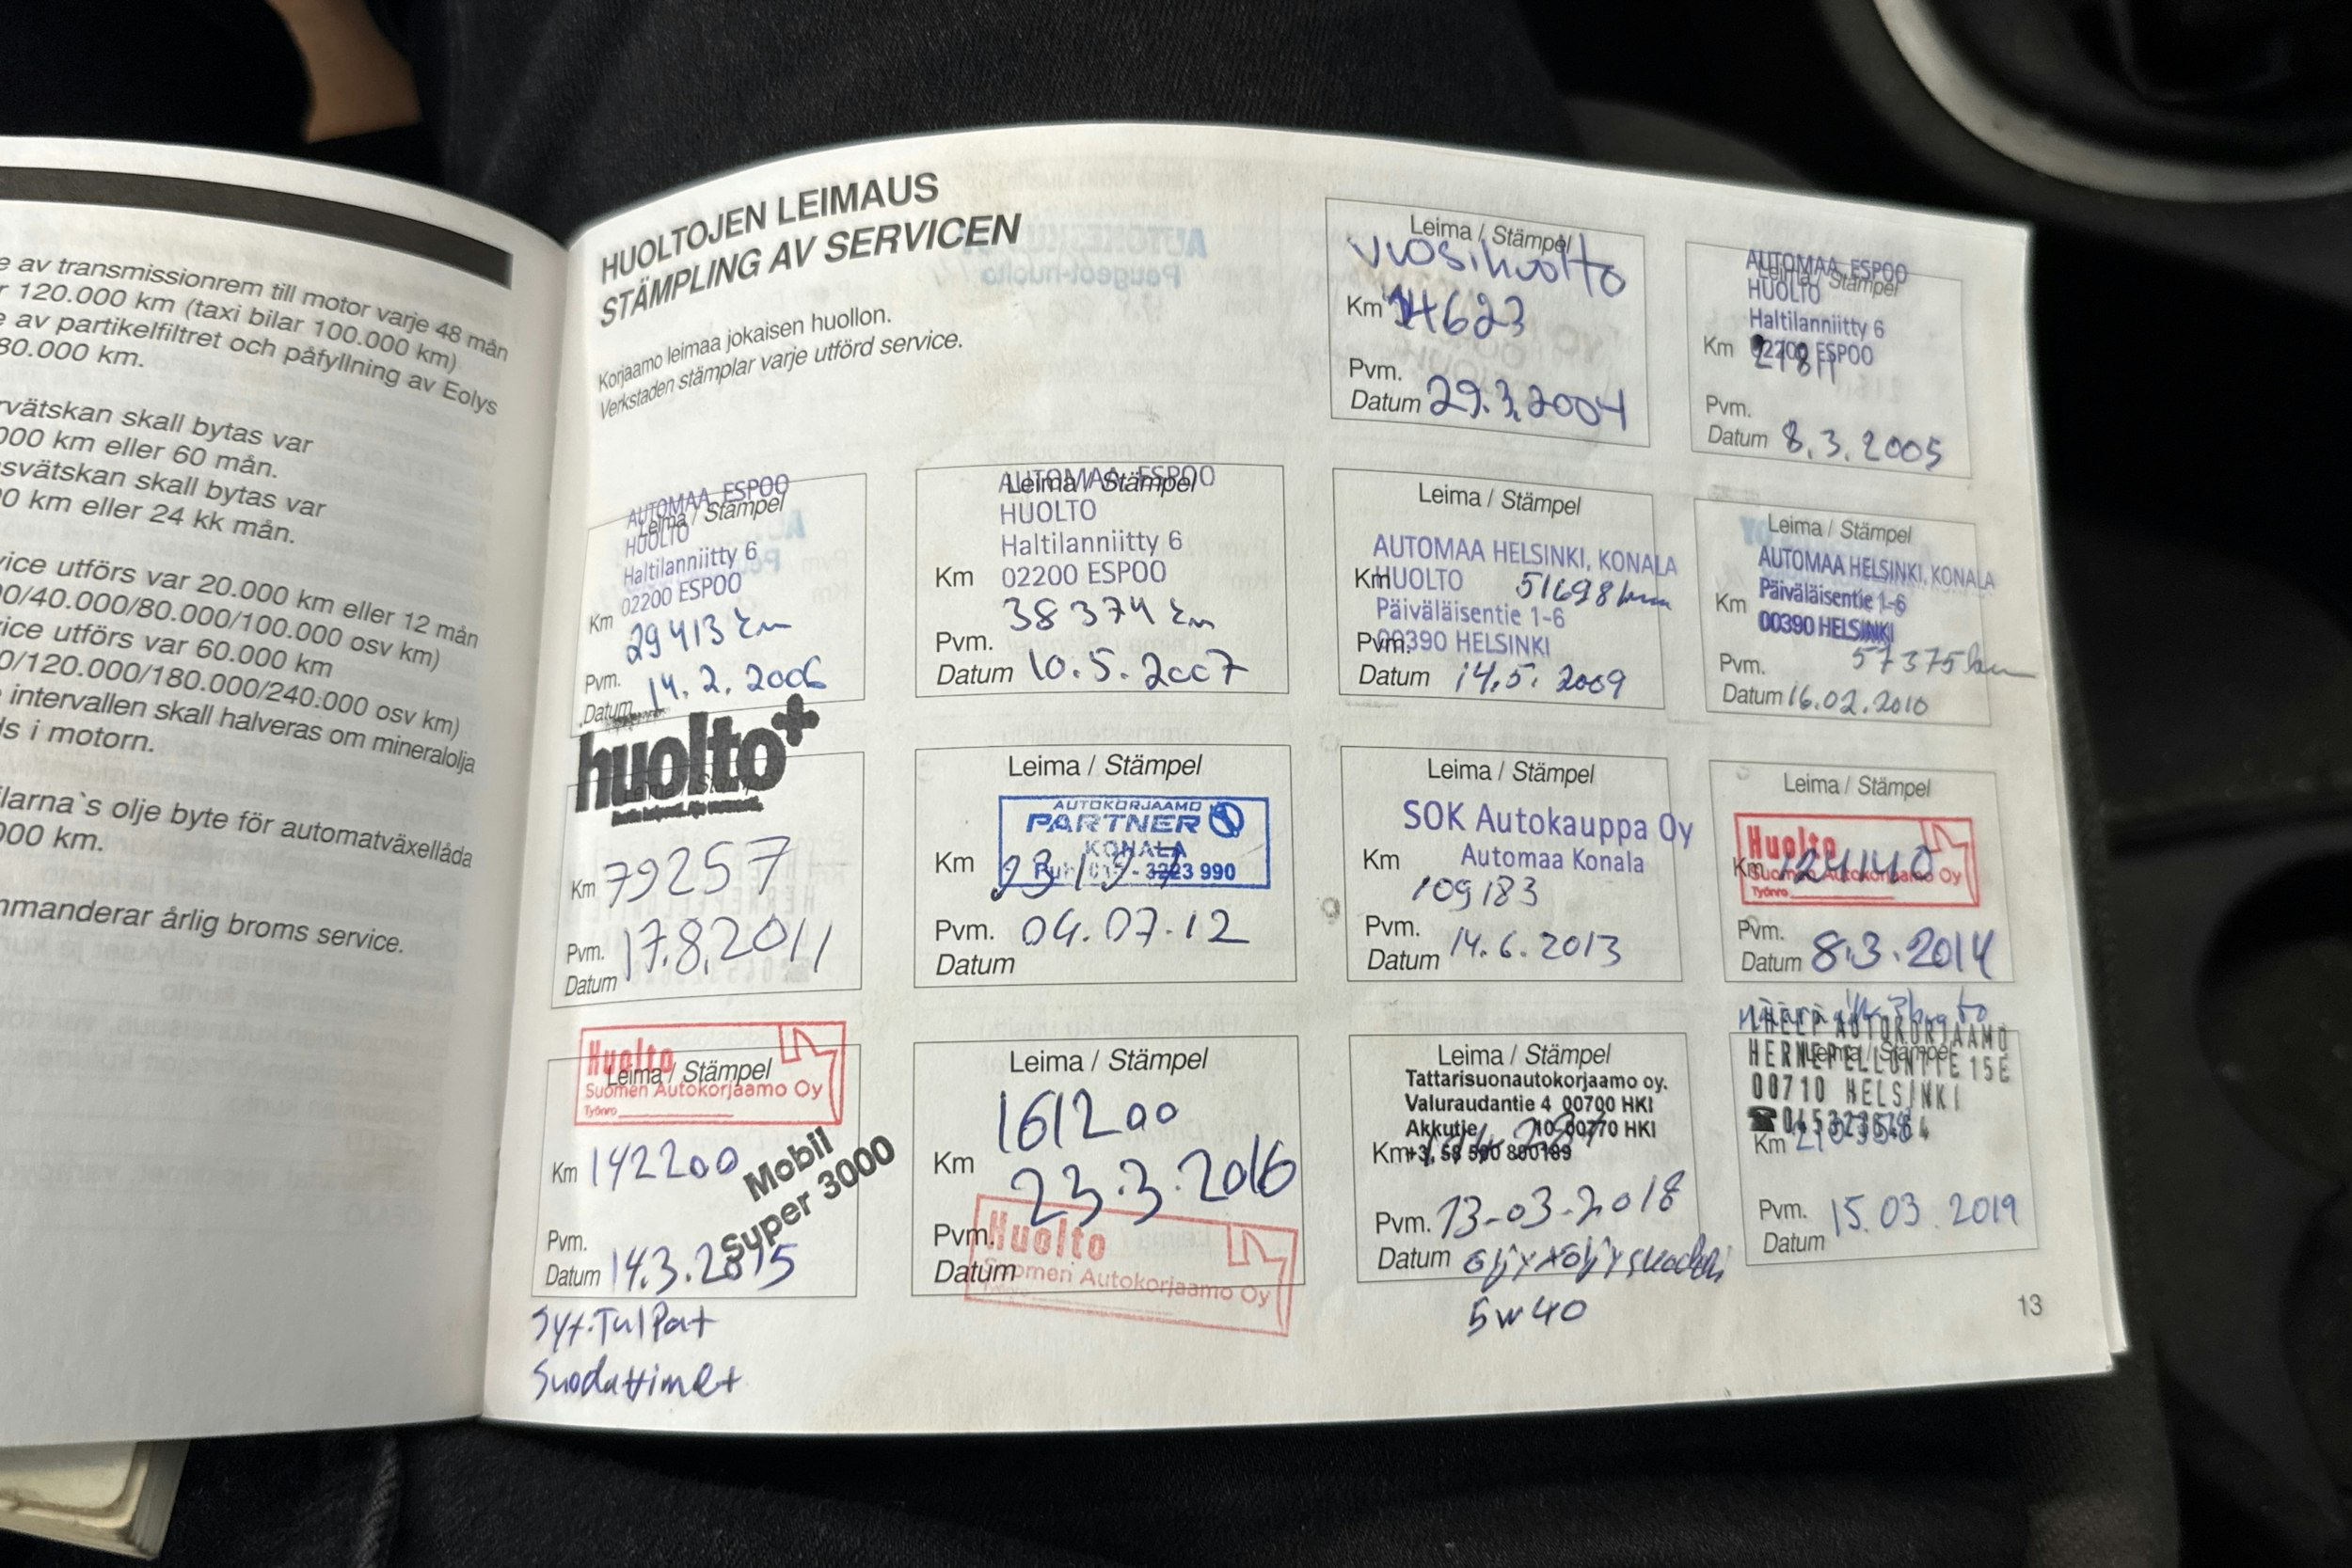 e av transmissionrem till motor varje 48 mån
r 120.000 km (taxi bilar 100.000 km)
e av partikelfiltret och påfyllning av Eolys
80.000 km.
rvätskan skall bytas var
000 km eller 60 mån.
svätskan skall bytas var
00 km eller 24 kk mån.
vice utförs var 20.000 km eller 12 mån
00/40.000/80.000/100.000 osv km)
vice utförs var 60.000 km
0/120.000/180.000/240.000 osv km)
intervallen skall halveras om mineralolja
ds i motorn.
ilarna`s olje byte för automatväxellåda
000 km.
mmanderar årlig broms service.
HUOLTOJEN LEIMAUS
STÄMPLING AV SERVICEN
Korjaamo leimaa jokaisen huollon.
Verkstaden stämplar varje utförd service.
Leima / Stämpel
vuosihuolto
Km 14623
Pvm.
Datum 29.3.2004
AUTOMAA ESPOO
Leima / Stämpel
HUOLTO
Haltilanniitty 6
02200 ESPOO
Km
Pvm.
Datum 8.3.2005
AUTOMAA ESPOO
Leima / Stämpel
HUOLTO
Haltilanniitty 6
02200 ESPOO
Km 29413 km
Pvm.
Datum 14.2.2006
AUTOMAA ESPOO
Leima / Stämpel
HUOLTO
Haltilanniitty 6
Km 02200 ESPOO
38374 km
Pvm.
Datum 10.5.2007
Leima / Stämpel
AUTOMAA HELSINKI, KONALA
Km HUOLTO 51698 km
Päiväläisentie 1-6
Pvm. 00390 HELSINKI
Datum 14.5. 2009
Leima / Stämpel
AUTOMAA HELSINKI, KONALA
Km Päiväläisentie 1-6
00390 HELSINKI
57375 km
Pvm.
Datum 16.02.2010
huolto+
Leima / Stämpel
Km 79257
Pvm. 17.8.2011
Datum
Leima / Stämpel
AUTOKORJAAMO
PARTNER
KONALA
Km
3223 990
Pvm. 04.07.12
Datum
Leima / Stämpel
SOK Autokauppa Oy
Km Automaa Konala
109183
Pvm.
Datum 14.6.2013
Leima / Stämpel
Huolto
Km 124140
Suomen Autokorjaamo Oy
Työnro
Pvm.
Datum 8.3.2014
Huolto
Leima / Stämpel
Suomen Autokorjaamo Oy
Työnro
Km 142200
Mobil
Super 3000
Pvm.
Datum 14.3.2015
Syt.Tulpat
Suodattimet
Leima / Stämpel
161200
Km
23.3.2016
Pvm.
Huolto
Datum
Suomen Autokorjaamo Oy
Leima / Stämpel
Tattarisuonautokorjaamo oy.
Valuraudantie 4 00700 HKI
Akkutie 10 00770 HKI
Km
Pvm. 13-03-2018
Datum öljy+öljysuodatin
5w40
AUTOKORJAAMO
HERNEPELLONTIE 15E
Leima / Stämpel
00710 HELSINKI
Km
Pvm. 15.03.2019
Datum
13